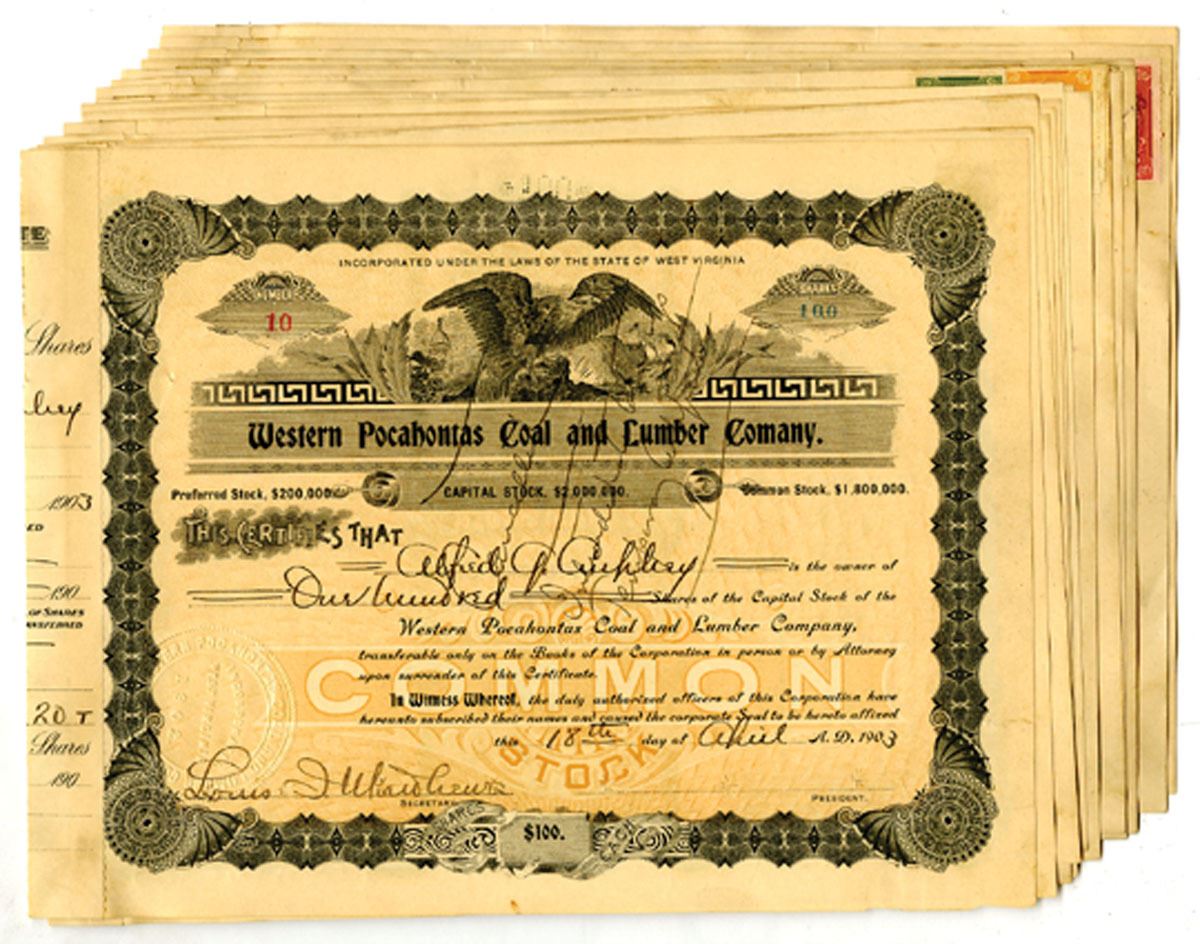 TE
INCORPORATED UNDER THE LAWS OF THE STATE OF WEST VIRGINIA
NUMBER
SHARES
10
100
Shares
Western Pocahontas Coal and Lumber Comany.
Preferred Stock, $200,000
CAPITAL STOCK, $2,000,000.
Common Stock, $1,800,000.
1903
THIS CERTIFIES THAT
Alfred is the owner of
One hundred Shares of the Capital Stock of the
190
OF SHARES
Western Pocahontas Coal and Lumber Company,
transferable only on the Books of the Corporation in person or by Attorney
upon surrender of this Certificate.
COMMON
In Witness Whereof, the duly authorized officers of this Corporation have
hereunto subscribed their names and caused the corporate Seal to be hereto affixed
this 18th day of April A. D. 1903
20
Shares
STOCK
190
Louis
SECRETARY
PRESIDENT.
SHARES
$100.